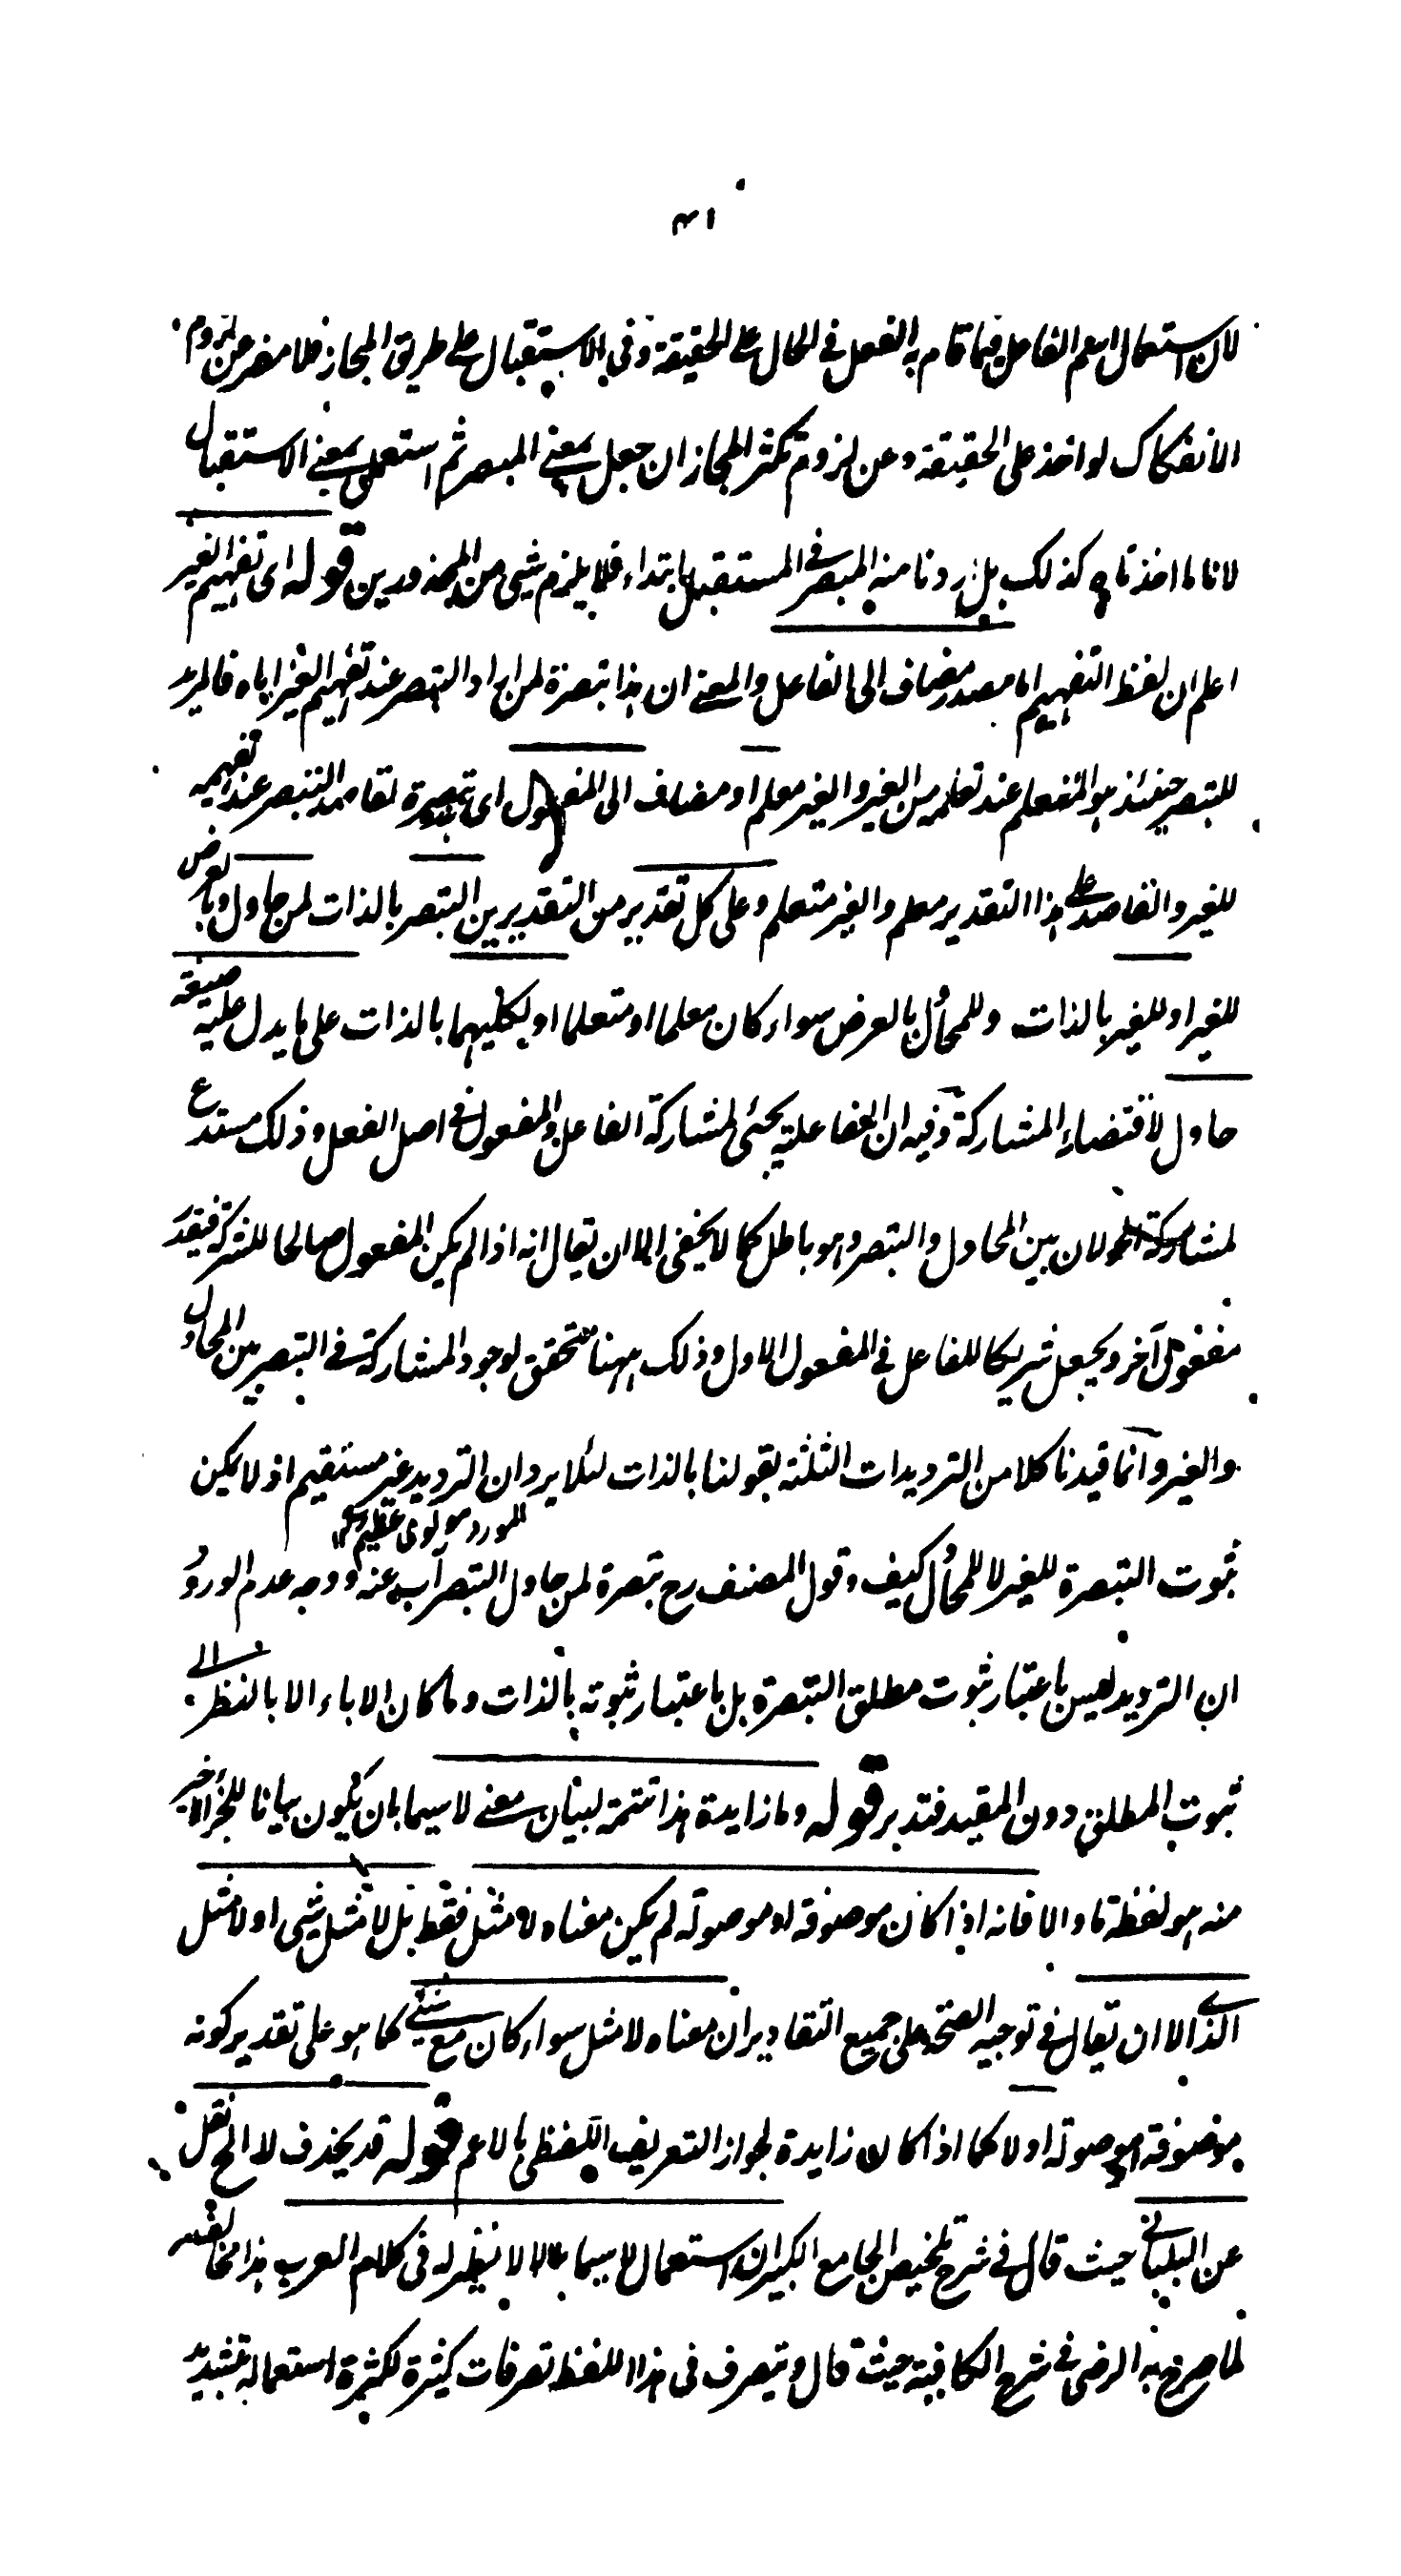 ١٣
لان استعمال اسم الفاعل فيما قام به الفعل في الحال على الحقيقة وفي الاستقبال على طريق المجاز فلا مفر عن لزوم
الانفكاك لو اخذ على الحقيقة وعن لزوم تكثر المجاز ان جعل بمعنى المبصر ثم استعمل بمعنى الاستقبال
لانا ما اخذناه كذلك بل اردنا منه المبصر في المستقبل ابتداء فلا يلزم شيى من المحذورين قوله اى تفهيم الغير
اعلم ان لفظ التفهيم اما مصدر مضاف الى الفاعل والمعنى ان هذا تبصرة لمن اراد التبصر عند تفهيم الغير اياه فالمريد
للتبصر حينئذ هو المتعلم عند تعلمه من الغير والغير معلم او مضاف الى المفعول اى تبصرة لقاصد التبصر عند تفهيمه
للغير والقاصد على هذا التقدير معلم والغير متعلم وعلى كل تقدير من التقديرين التبصر بالذات لمن حاول وبالعرض
للغير او للغير بالذات وللمحاول بالعرض سواء كان معلما او متعلما او لكليهما بالذات على ما يدل عليه صيغة
حاول لاقتضاء المشاركة وفيه ان المفاعلة يجئ لمشاركة الفاعل والمفعول في اصل الفعل وذلك مستدع
لمشاركة بين المحاول والتبصر وهو باطل كما لا يخفى الا ان يقال انه اذا لم يكن المفعول صالحا للشركة فيقدر
مفعول آخر ويجعل شريكا للفاعل في المفعول الاول وذلك ههنا متحقق لوجود المشاركة في التبصر بين المحاول
والغير وانما قيدنا كلا من الترديدات الثلثة بقولنا بالذات لئلا يرد ان الترديد غير مستقيم اذ لا يمكن
المورد مولوى عظيم
ثبوت التبصرة للغير لا للمحاول كيف وقول المصنف رح تبصرة لمن حاول التبصر آب عنه ووجه عدم الورود
ان الترديد ليس باعتبار ثبوت مطلق التبصرة بل باعتبار ثبوته بالذات وما كان الاباء الا بالنظر الى
ثبوت المطلق دون المقيد فتدبر قوله وما زايدة هذا تتمة لبيان معنى لا سيما بان يكون بيانا للجزء الاخير
منه هو لفظة ما والا فانه اذا كان موصوفة او موصولة لم يكن معناه لا مثل فقط بل لا مثل شيى او لا مثل
الذى الا ان يقال في توجيه الصحة على جميع التقادير ان معناه لا مثل سواء كان مع شيى كما هو على تقدير كونه
موصوفة او موصولة او لا كما اذا كان زايدة لجواز التعريف اللفظى بالاعم قوله قد يحذف لا الخ نقل
عن البلبانى حيث قال في شرح تلخيص الجامع الكبير ان استعمال لا سيما بلا لا نظير له فى كلام العرب هذا مخالف
لما صرح به الرضى في شرح الكافية حيث قال وتصرف فى هذا اللفظ تصرفات كثيرة لكثرة استعماله بتشديد